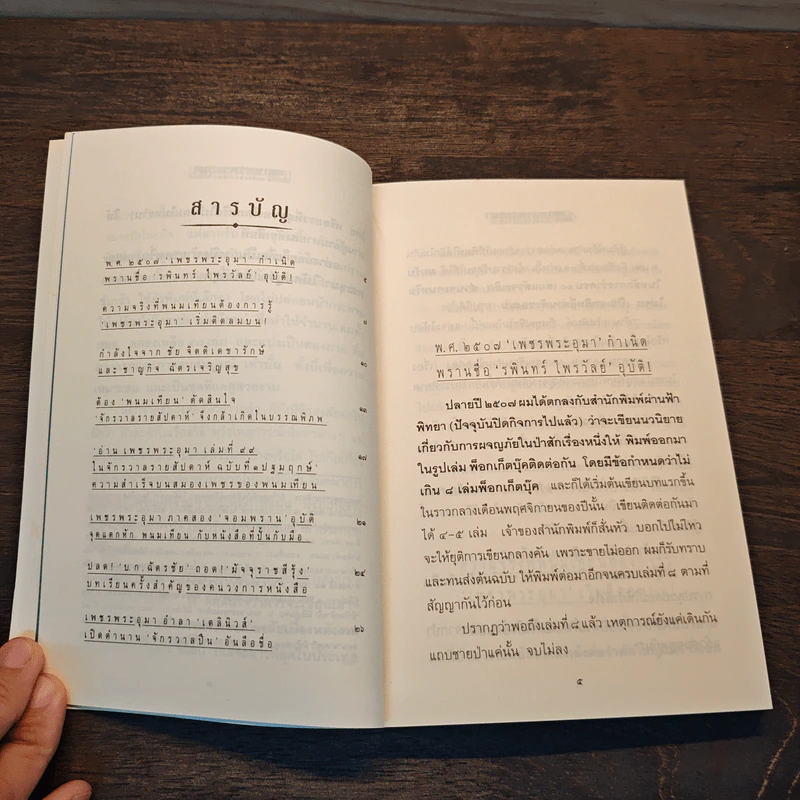 สารบัญ
พ.ศ. ๒๕๐๗ 'เพชรพระอุมา' กำเนิด
พรานชื่อ 'รพินทร์ ไพรวัลย์' อุบัติ! ๕
ความจริงที่พนมเทียนต้องการรู้
'เพชรพระอุมา' เริ่มติดลมบน! ๗
กำลังใจจาก ชัย จิตติเดชารักษ์
และ ชาญกิจ ฉัตรเจริญสุข ๑๐
ต้อง 'พนมเทียน' ตัดสินใจ
'จักรวาลรายสัปดาห์' จึงกล้าเกิดในบรรณพิภพ ๑๓
'อ่าน เพชรพระอุมา เล่มที่ ๙๙
ในจักรวาลรายสัปดาห์ ฉบับที่๑ปฐมฤกษ์'
ความสำเร็จบนสมองเพชรของพนมเทียน ๑๗
เพชรพระอุมา ภาคสอง 'จอมพราน' อุบัติ
จุดแตกหัก พนมเทียน กับหนังสือที่ปั้นกับมือ ๒๑
ปลด! 'บ.ก.ฉัตรชัย' ถอด! 'มัจจุราชสีรุ้ง'
บทเรียนครั้งสำคัญของคนวงการหนังสือ ๒๔
เพชรพระอุมา อำลา 'เดลินิวส์'
เปิดตำนาน 'จักรวาลปืน' อันลือชื่อ ๒๖
พ.ศ. ๒๕๐๗ 'เพชรพระอุมา' กำเนิด
พรานชื่อ 'รพินทร์ ไพรวัลย์' อุบัติ!
ปลายปี ๒๕๐๗ ผมได้ตกลงกับสำนักพิมพ์ผ่านฟ้า
พิทยา (ปัจจุบันปิดกิจการไปแล้ว) ว่าจะเขียนนวนิยาย
เกี่ยวกับการผจญภัยในป่าสักเรื่องหนึ่งให้ พิมพ์ออกมา
ในรูปเล่ม พ็อกเก็ตบุ๊คติดต่อกัน โดยมีข้อกำหนดว่าไม่
เกิน ๘ เล่มพ็อกเก็ตบุ๊ค และก็ได้เริ่มต้นเขียนบทแรกขึ้น
ในราวกลางเดือนพฤศจิกายนของปีนั้น เขียนติดต่อกันมา
ได้ ๔-๕ เล่ม เจ้าของสำนักพิมพ์ก็สั่นหัว บอกไปไม่ไหว
จะให้ยุติการเขียนกลางคัน เพราะขายไม่ออก ผมก็รับทราบ
และทนส่งต้นฉบับ ให้พิมพ์ต่อมาอีกจนครบเล่มที่ ๘ ตามที่
สัญญากันไว้ก่อน
ปรากฏว่าพอถึงเล่มที่ ๘ แล้ว เหตุการณ์ยังแค่เดินกัน
แถบชายป่าแค่นั้น จบไม่ลง
๕